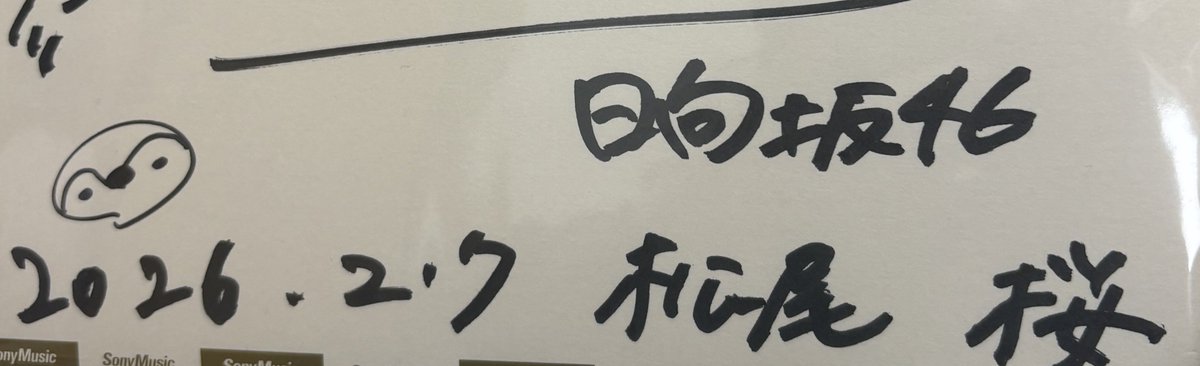 日向坂46
2026.2.7 松尾 桜
onyMusic SonyMusic SonyMusic